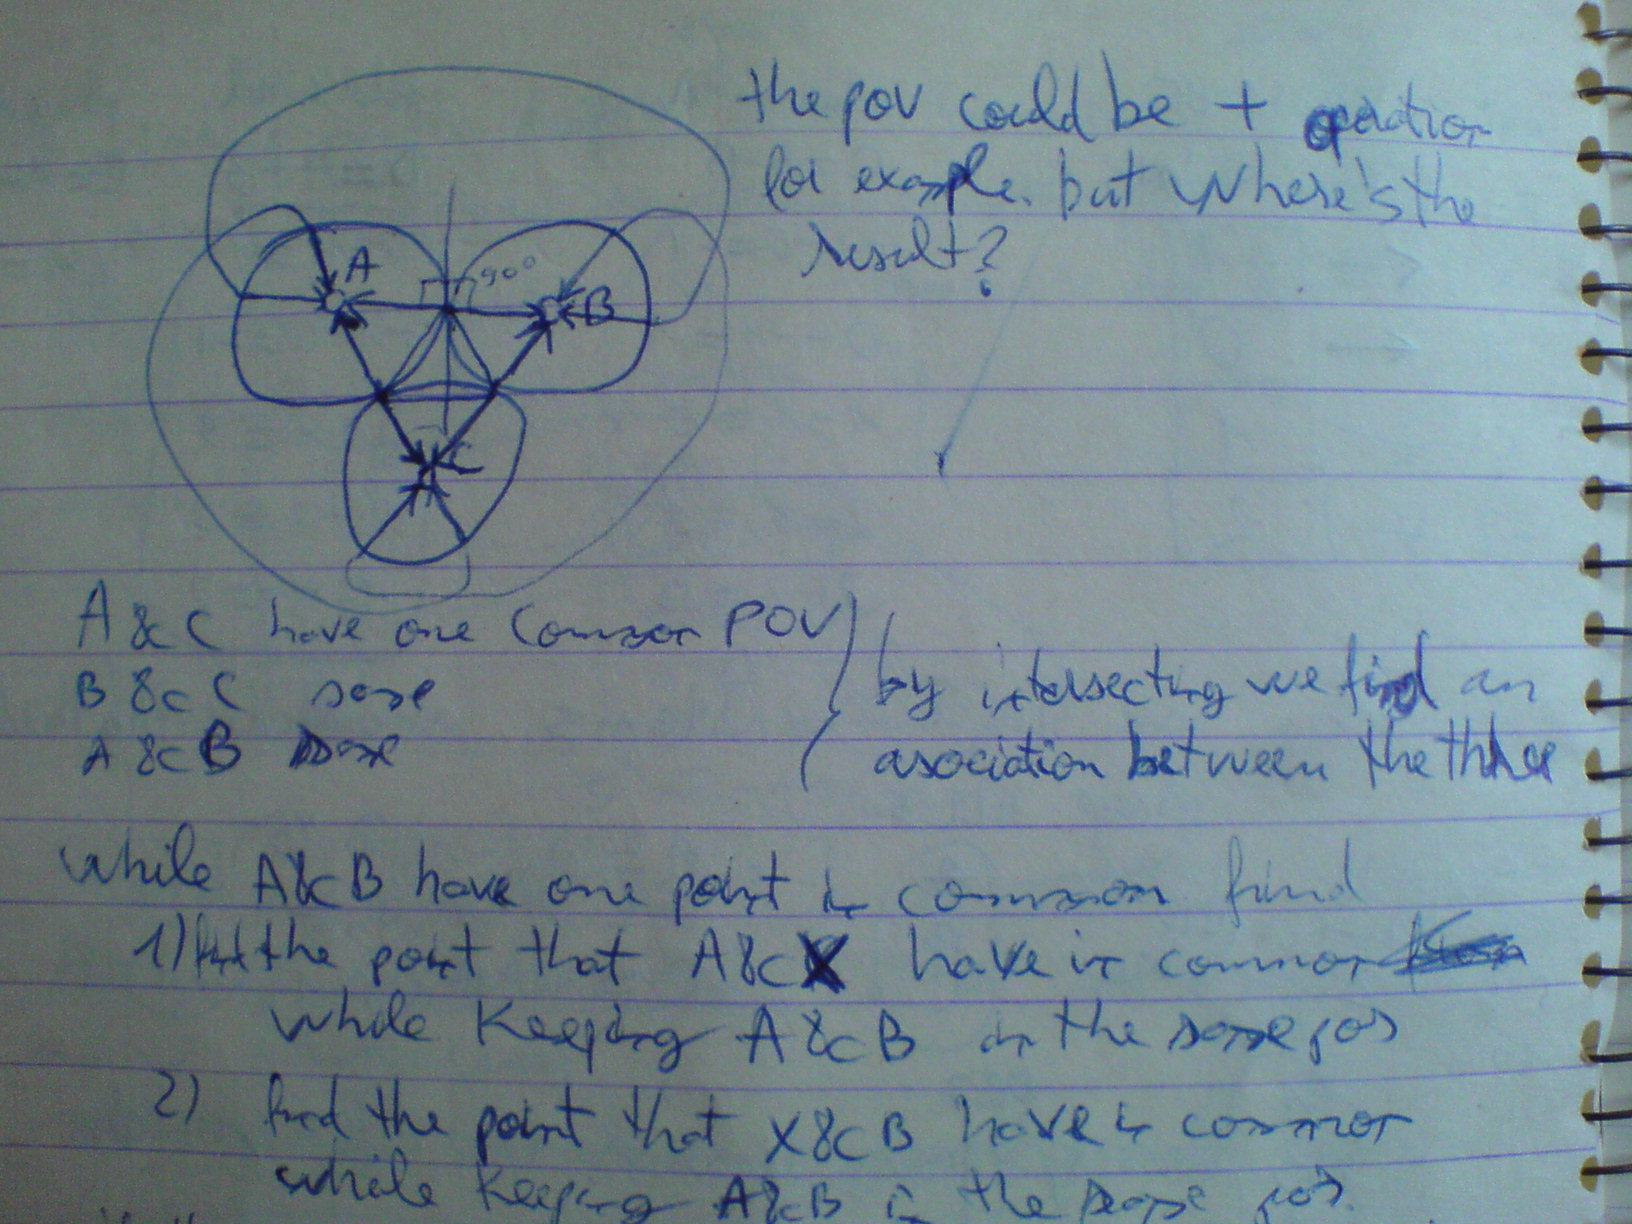 the pov could be + operation
for example. but where's the
result?
A
90°
B
C
A & C have one common POV
B & C same
A & B same
by intersecting we find an
asociation between the three
while A&B have one point in common find
1) find the point that A&X have in common
while keeping A&B in the same pos
2) find the point that X&B have in common
while keeping A&B in the same pos.